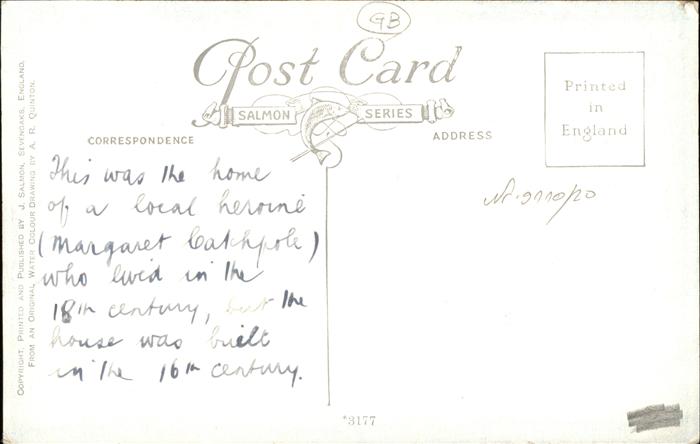 GB
Post Card
SALMON SERIES
CORRESPONDENCE
ADDRESS
Printed
in
England
COPYRIGHT. PRINTED AND PUBLISHED BY J. SALMON, SEVENOAKS, ENGLAND.
FROM AN ORIGINAL WATER COLOUR DRAWING BY A. R. QUINTON.
This was the home
of a local heroine
(Margaret Catchpole)
who lived in the
18th century, but the
house was built
in the 16th century.
*3177